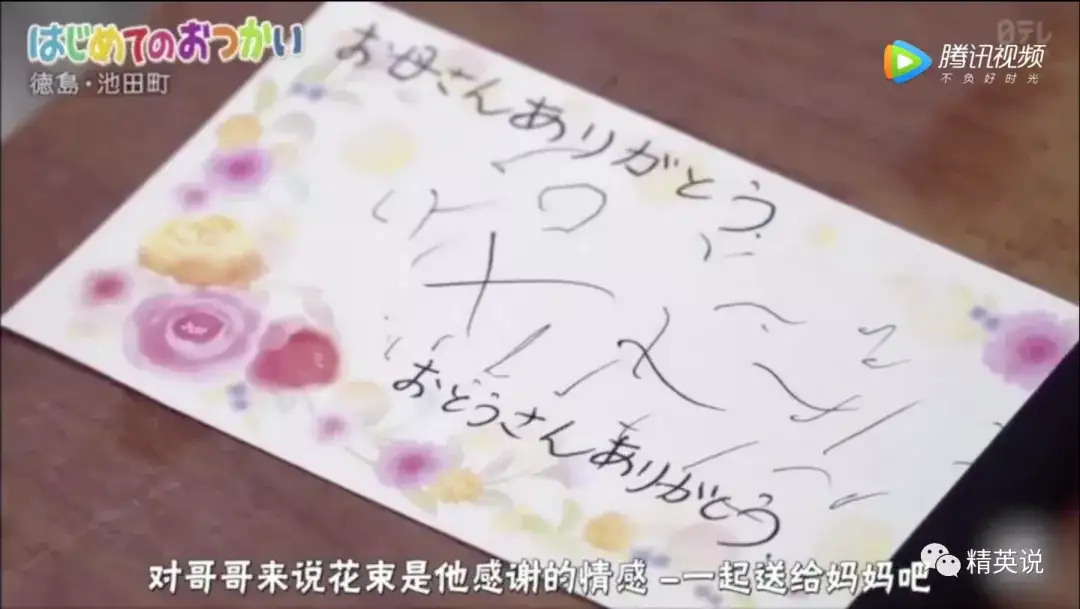 はじめてのおつかい
徳島・池田町
日テレ
腾讯视频
不负好时光
お母さんありがとう
おとうさんありがとう
对哥哥来说花束是他感谢的情感 –一起送给妈妈吧
精英说